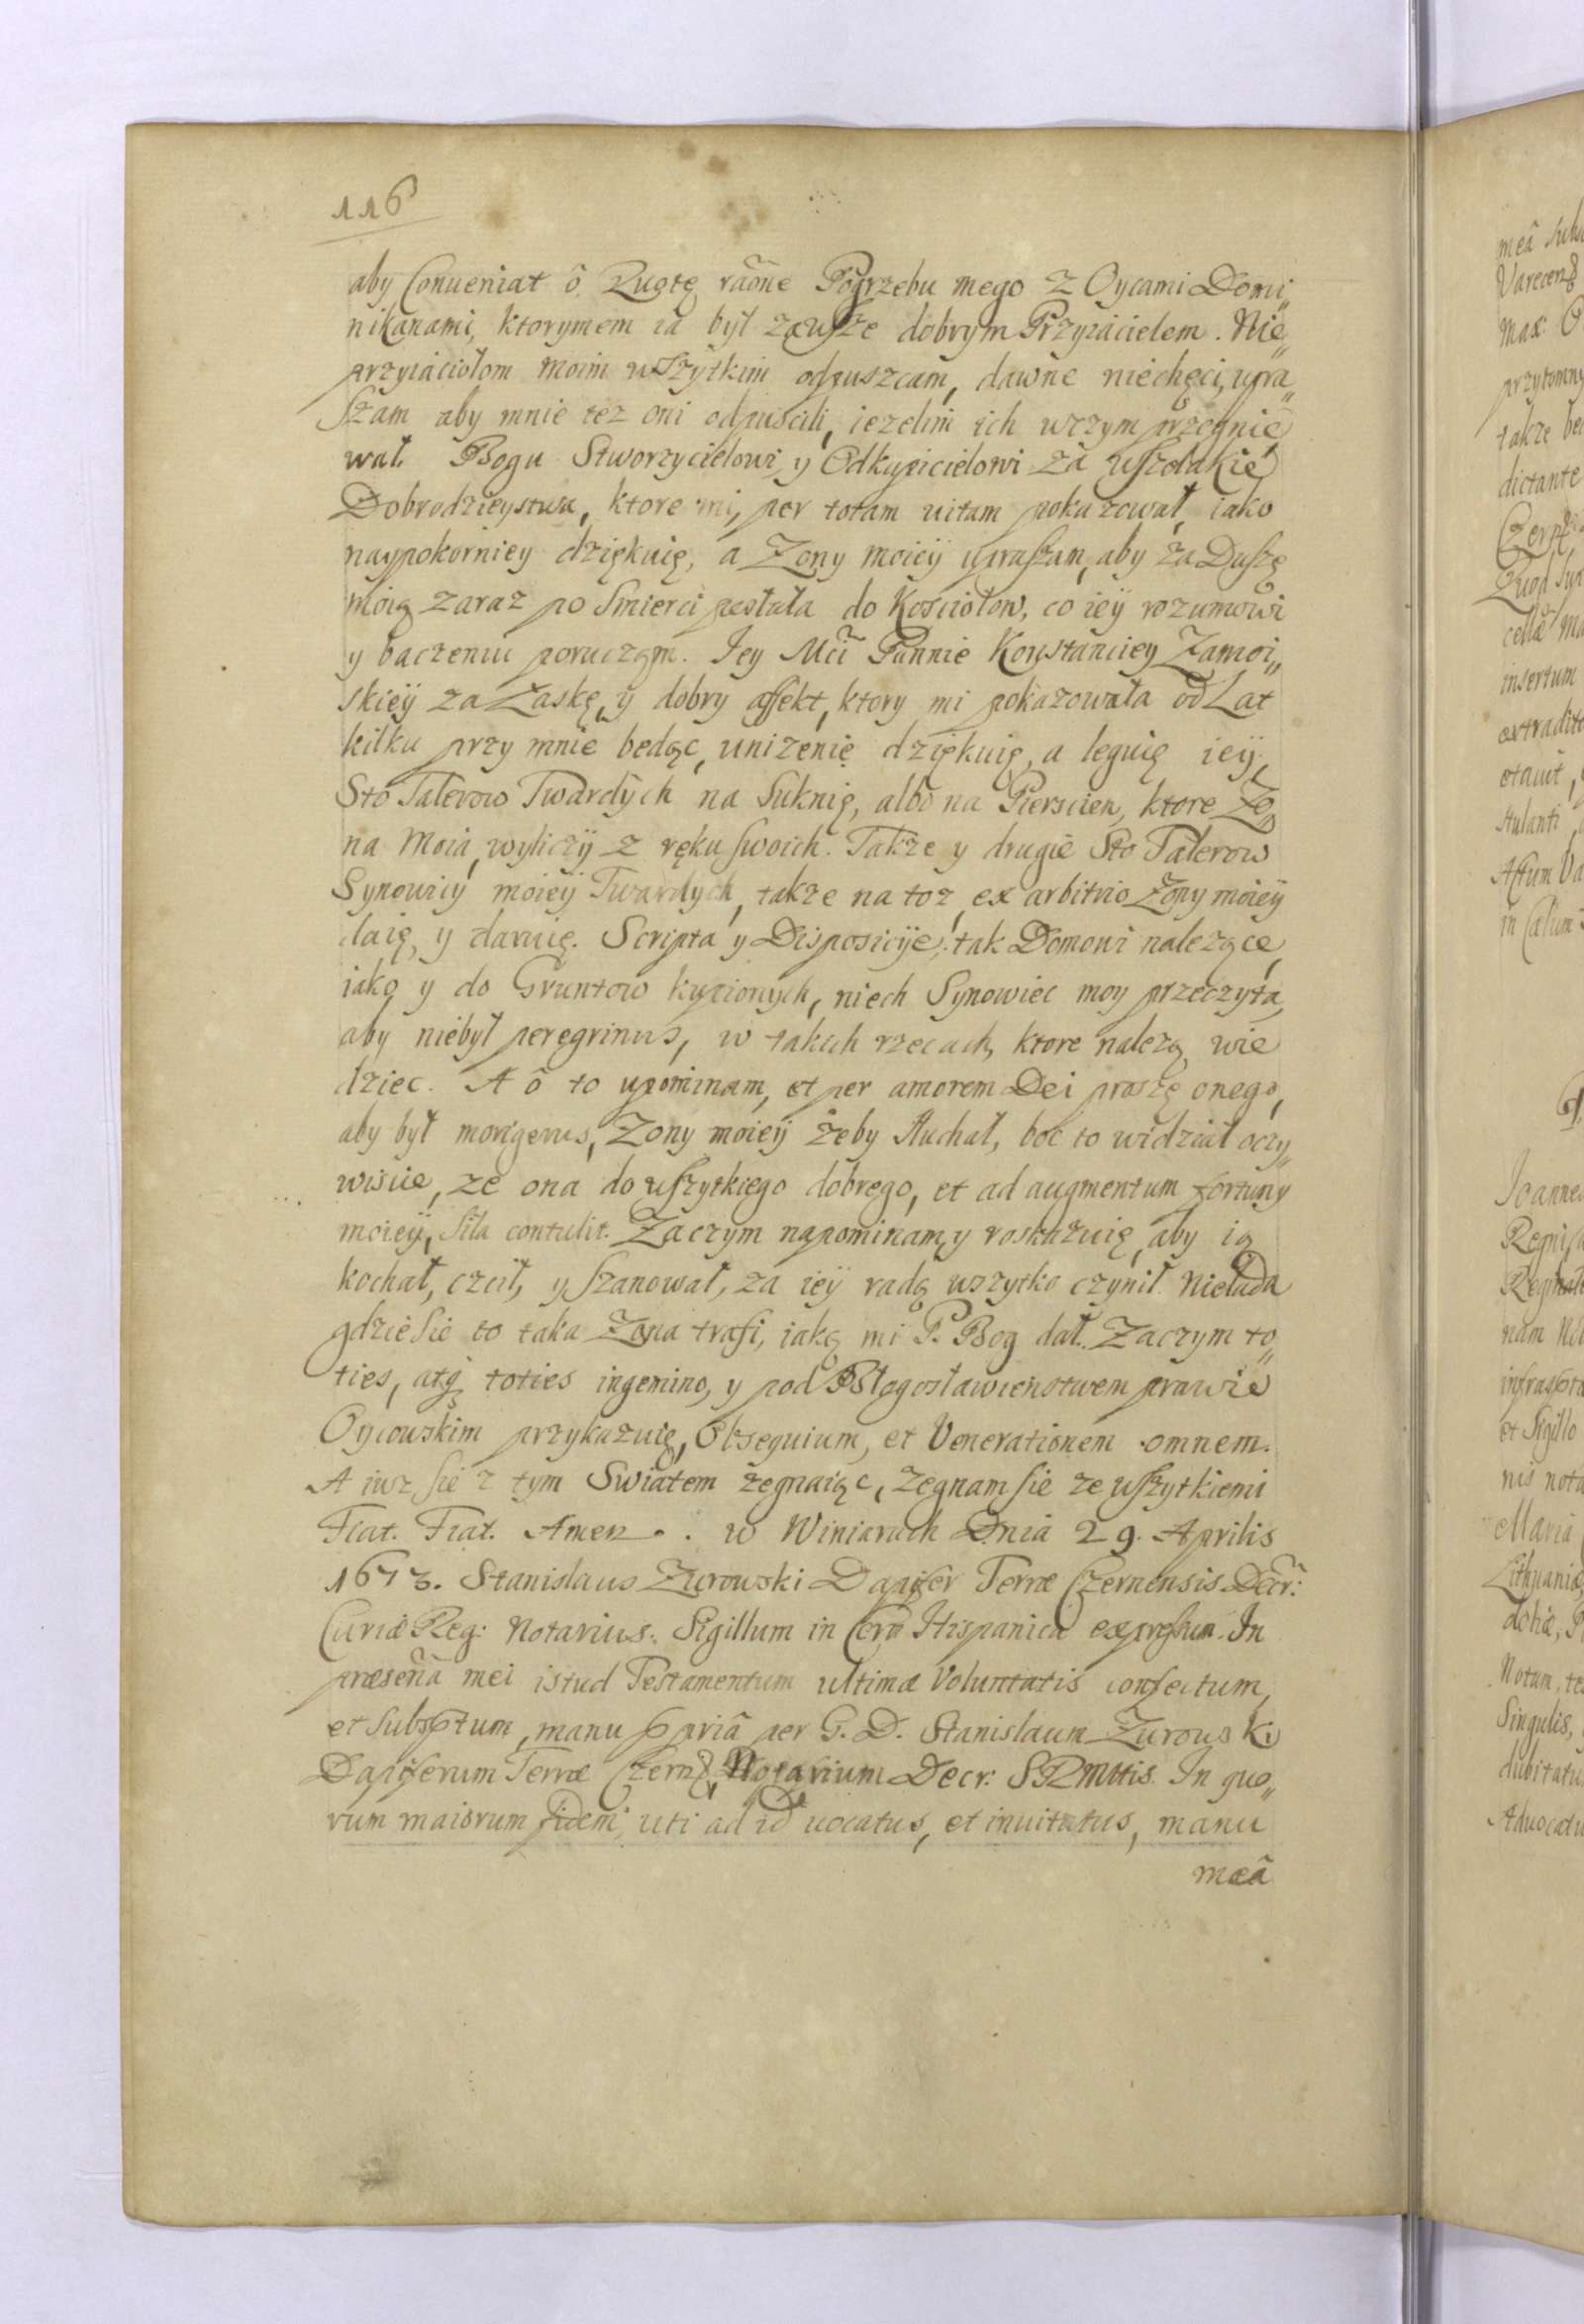 116
aby Conueniat ô Quotę raõne Pogrzebu mego z Oycami Domi„
nikanami, ktorymem ia był zawsze dobrym Przyiacielem. Nie„
przyiaciołom moim wszytkim odpuszcam, dawne niechęci, upra„
szam aby mnie tez oni odpuscili, iezelim ich wczym przegnie
wał. Bogu Stworzycielowi y Odkupicielowi za wszelakie
Dobrodzieystwa, ktore mi, per totam uitam pokazował, iako
naypokorniey dziękuię, a Zony moieÿ upraszam, aby za Duszę
moię zaraz po Smierci posłała do Kosciołow, co ieÿ rozumowi
y baczeniu poruczam. Jey Mći Pannie Konstanciey Zamoi„
skieÿ za Łaskę, y dobry affekt, ktory mi pokazowała od Lat
kilku przy mnie bedąc, unizenię dziękuię, a leguię ieÿ,
Sto Talerow Twardych na Suknię, albo na Pierscien, ktore Żo„
na Moia, wyliczÿ z ręku swoich. Takze y drugie Sto Talerow
Synowicy moieÿ Twardych, takze na toz, ex arbitrio Zony moieÿ
daię, y daruię. Scripta y Disposicÿe, tak Domowi nalezące,
iako y do Gruntow kupionych, niech Synowiec moy przeczyta,
aby niebył peregrinus, w takich rzecach, ktore nalezą wie
dziec. A ô to upominam, et per amorem Dei proszę onego,
aby był morigerus, Zony moieÿ żeby słuchał, boć to widział oczy„
wiscie, ze ona do wszytkiego dobrego, et ad augmentum fortuny
moieÿ, siła contulit. Zaczym napominam, y roskazuię, aby ią
kochał, czcił, y szanował, za ieÿ radą wszytko czynił. Nielada
gdzie sie to taka Zona trafi, iaką mi P. Bog dał. Zaczym to„
ties, atq toties ingemino, y pod Błogosławienstwem prawie
Oycowskim przykazuię, Obsequium, et Venerationem omnem.
A iusz sie z tym Swiatem żegnaiąc, zegnam sie ze wszytkiemi
Fiat. Fiat. Amen. w Winiarach Dnia 29. Aprilis
1673. Stanislaus Zurowski Dapifer Terræ Czernensis Decr:
Curiæ Reg: Notarius. Sigillum in Cera Hispanica expressum. In
præseñã mei istud Testamentum ultimæ Voluntatis confectum,
et subsptum, manu ppriâ per G. D. Stanislaum Zurowski
Dapiferum Terræ Czern, Notarium Decr: SRMttis. In quo„
rum maiorum fidem, uti ad id uocatus, et inuitatus, manu
meâ